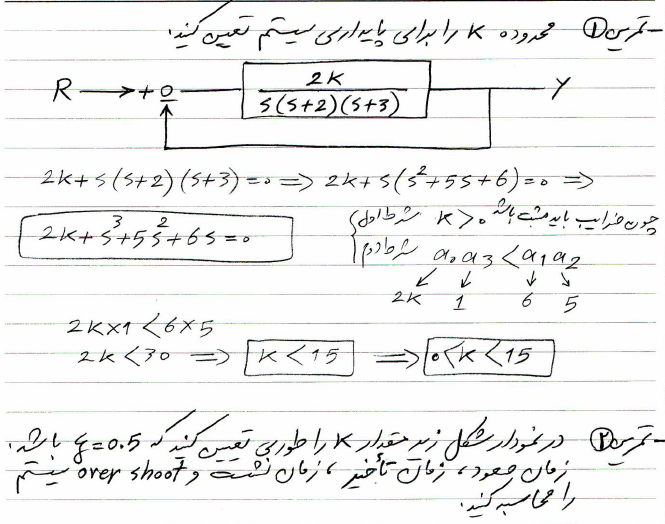 تمرین ① محدوده K را برای پایداری سیستم تعیین کنید.
R + 0 2K / s(s+2)(s+3) Y
2K+s(s+2)(s+3)=0 ⇒ 2K+s(s²+5s+6)=0 ⇒
2K+s³+5s²+6s=0
شرط اول K>0 چون ضرایب باید مثبت باشد
شرط دوم a₀a₃<a₁a₂
2K 1 6 5
2K×1<6×5
2K<30 ⇒ K<15 ⇒ 0<K<15
تمرین ② در نمودار شکل زیر مقدار K را طوری تعیین کنید که ξ=0.5 باشد.
زمان صعود، زمان تأخیر، زمان نشست و over shoot سیستم
را محاسبه کنید.